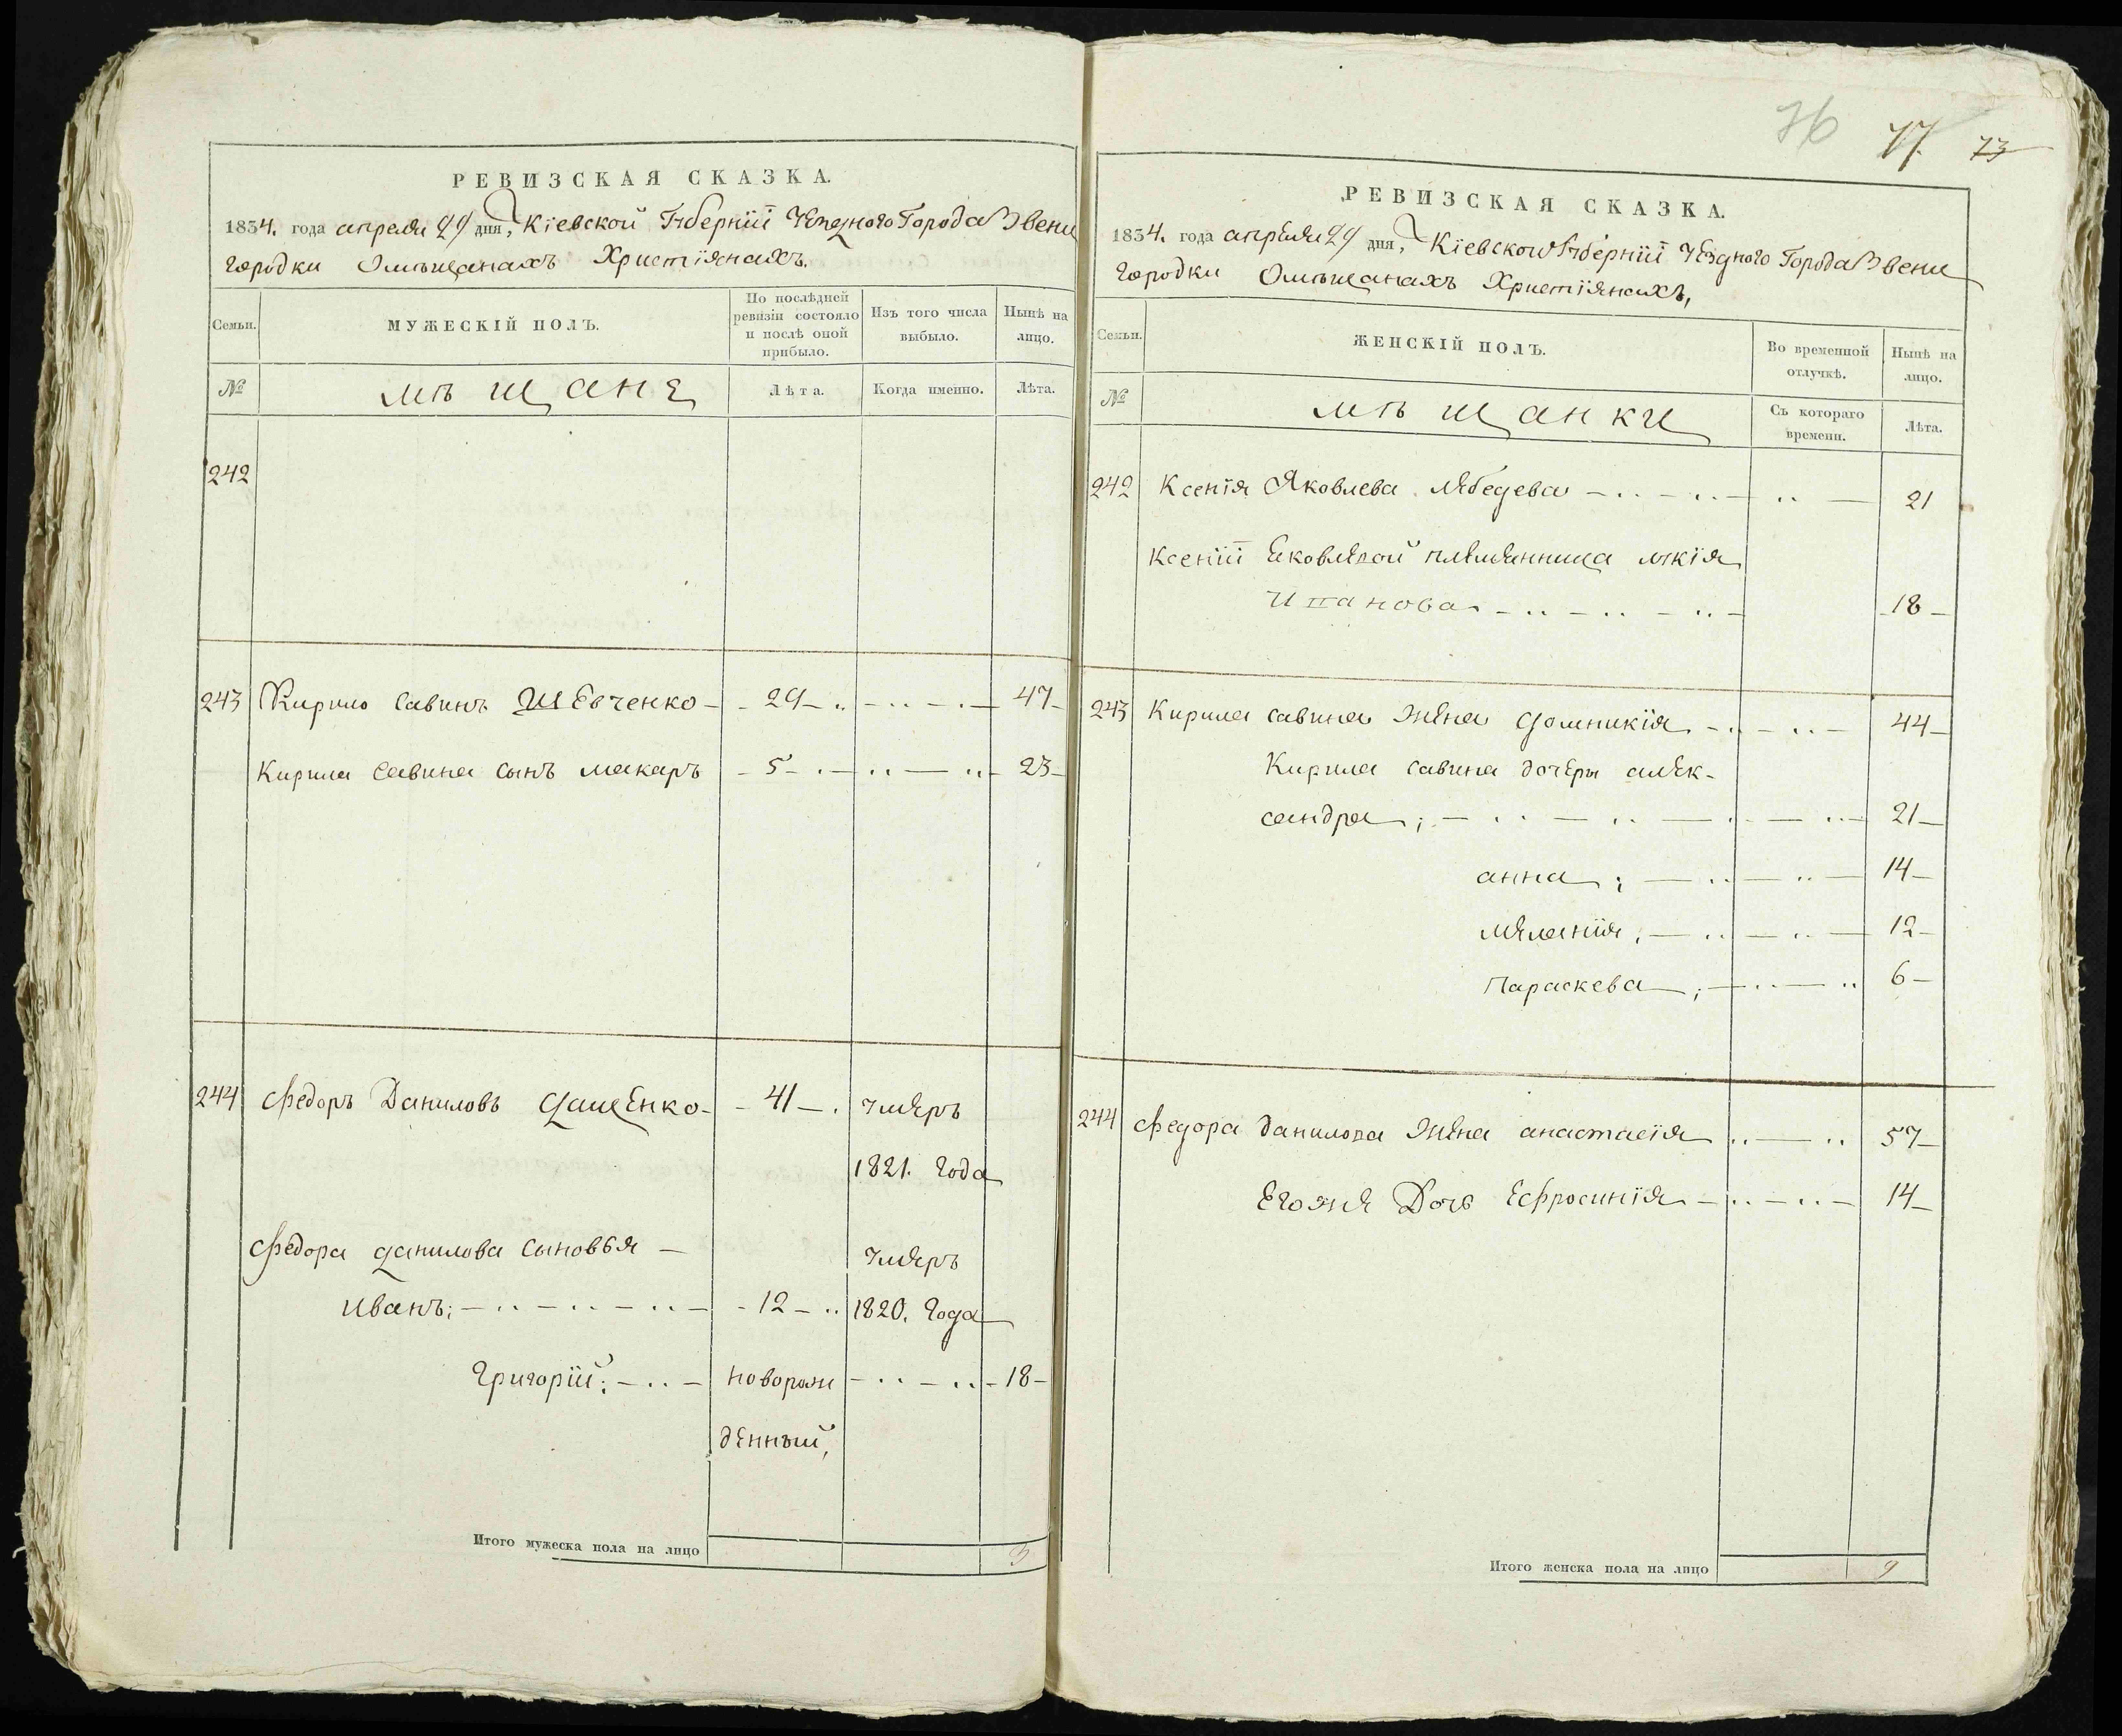 РЕВИЗСКАЯ СКАЗКА.
1834. года апреля 29 дня, Кіевской Губерніи Уезного Города Звени
городки Омѣщанахъ Христіянахъ.
Семьи.
МУЖЕСКІЙ ПОЛЪ.
По послѣдней ревизіи состояло и послѣ оной прибыло.
Изъ того числа выбыло.
Нынѣ на лицо.
№
мѣщане
Лѣта.
Когда именно.
Лѣта.
242
243 Кирило Савинъ Шевченко - 29 - 47
Кирила Савина сынъ макаръ - 5 - 23
244 Федоръ Даниловъ Дащенко - 41 - умеръ
1821. года
Федора данилова сыновья - умеръ
Иванъ; - 12 - 1820. Года
Григорій; - новорож - 18 -
денный,
Итого мужеска пола на лицо 3
76 77. 73
РЕВИЗСКАЯ СКАЗКА.
1834. года апреля 29 дня, Кіевской Губерніи Уездного Города Звени
городки Омѣщанахъ Христіянахъ,
Семьи.
ЖЕНСКІЙ ПОЛЪ.
Во временной отлучкѣ.
Нынѣ на лицо.
№
мѣщанки
Съ котораго времени.
Лѣта.
242 Ксенія Яковлева Лебедева - 21
Ксеніи Яковлевой племянница
Иванова - 18 -
243 Кирила савина жена домникія - 44 -
Кирила савина дочеры алек-
сандра; - 21 -
анна; - 14 -
меланія, - 12 -
Параскева, - 6 -
244 Федора данилова жена анастасія - 57 -
Егожя Дочь Ефросинія - 14 -
Итого женска пола на лицо 9